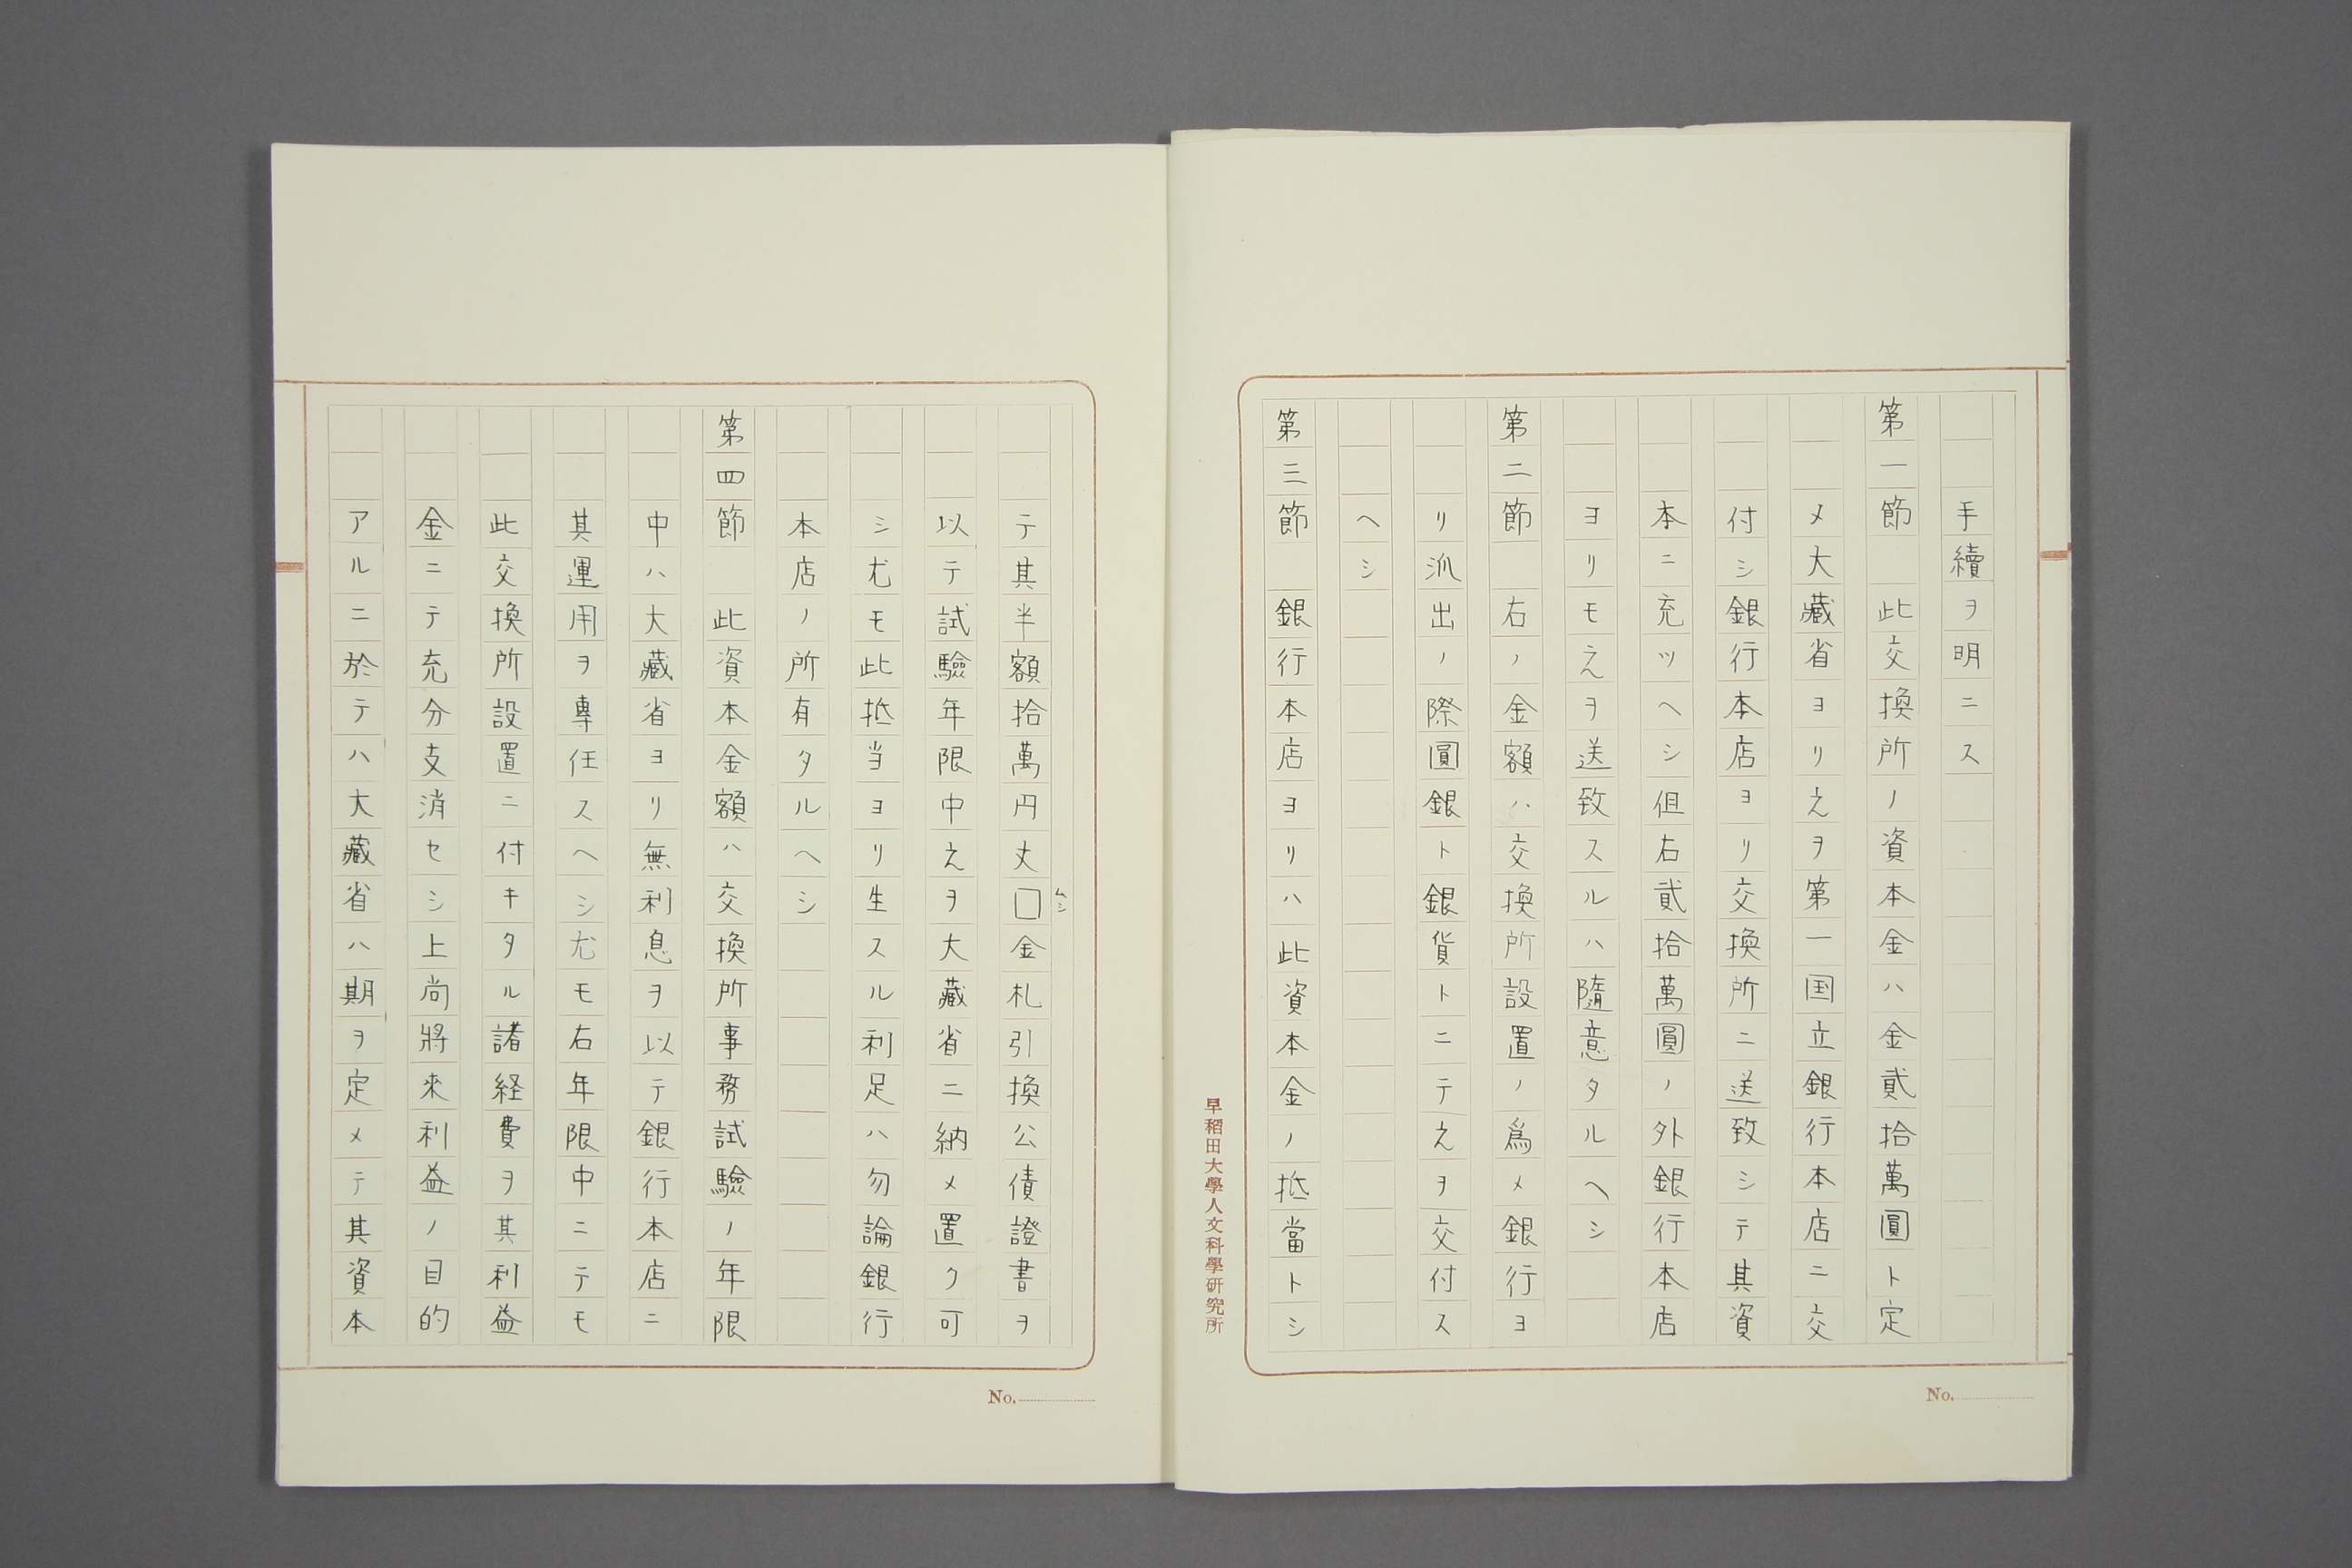 手續ヲ明ニス
第一節　此交換所ノ資本金ハ金貳拾萬圓ト定
メ大藏省ヨリ之ヲ第一国立銀行本店ニ交
付シ銀行本店ヨリ交換所ニ送致シテ其資
本ニ充ツヘシ但右貳拾萬圓ノ外銀行本店
ヨリモ之ヲ送致スルハ隨意タルヘシ
第二節　右ノ金額ハ交換所設置ノ爲メ銀行ヨ
リ派出ノ際圓銀ト銀貨トニテ之ヲ交付ス
ヘシ
第三節　銀行本店ヨリハ此資本金ノ抵當トシ
早稲田大學人文科學研究所
No.
テ其半額拾萬円丈□金札引換公債證書ヲ
ムシ
以テ試驗年限中之ヲ大藏省ニ納メ置ク可
シ尤モ此抵当ヨリ生スル利足ハ勿論銀行
本店ノ所有タルヘシ
第四節　此資本金額ハ交換所事務試驗ノ年限
中ハ大藏省ヨリ無利息ヲ以テ銀行本店ニ
其運用ヲ專任スヘシ尤モ右年限中ニテモ
此交換所設置ニ付キタル諸経費ヲ其利益
金ニテ充分支消セシ上尚將來利益ノ目的
アルニ於テハ大藏省ハ期ヲ定メテ其資本
No.